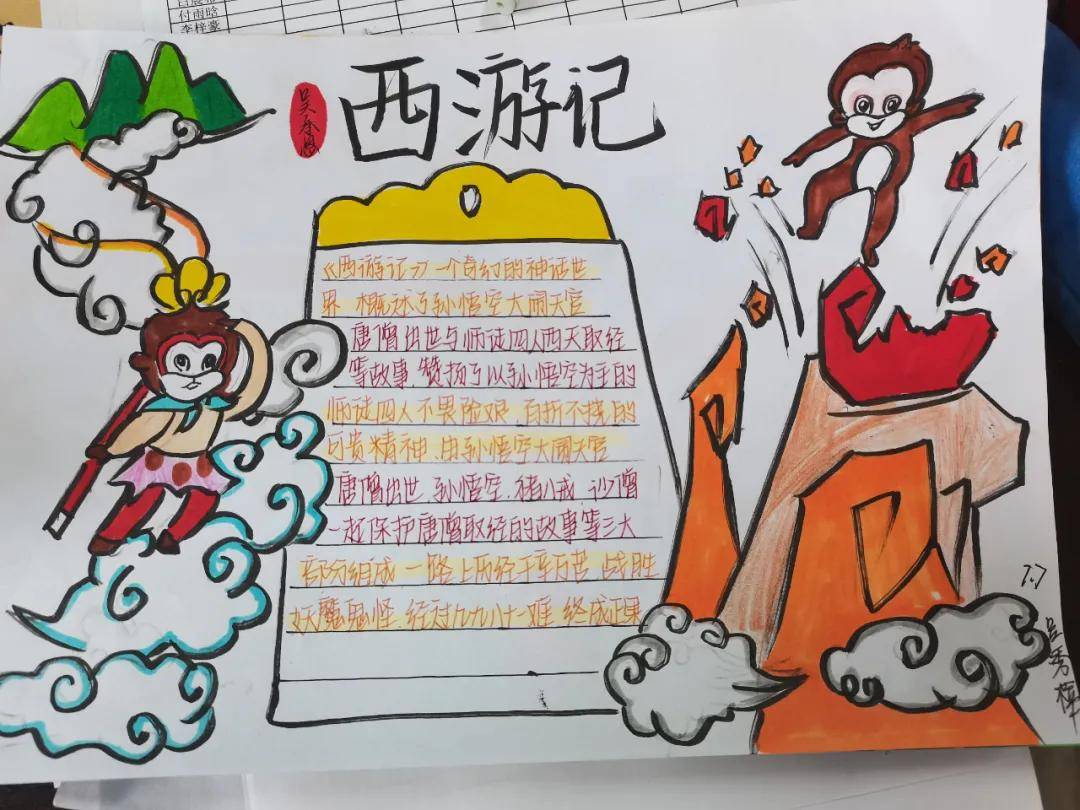 付雨晗
李梓豪
西游记
吴承恩
《西游记》一个奇幻的神话世
界.概述了孙悟空大闹天宫
唐僧出世与师徒四人西天取经
等故事.赞扬了以孙悟空为手的
师徒四人不畏险艰.百折不挠的
可贵精神.由孙悟空大闹天宫
唐僧出世.孙悟空.猪八戒.沙僧
一起保护唐僧取经的故事等三大
部分组成.一路上历经千辛万苦.战胜
妖魔鬼怪.经过九九八十一难.终成正果
7.7
吴秀萍